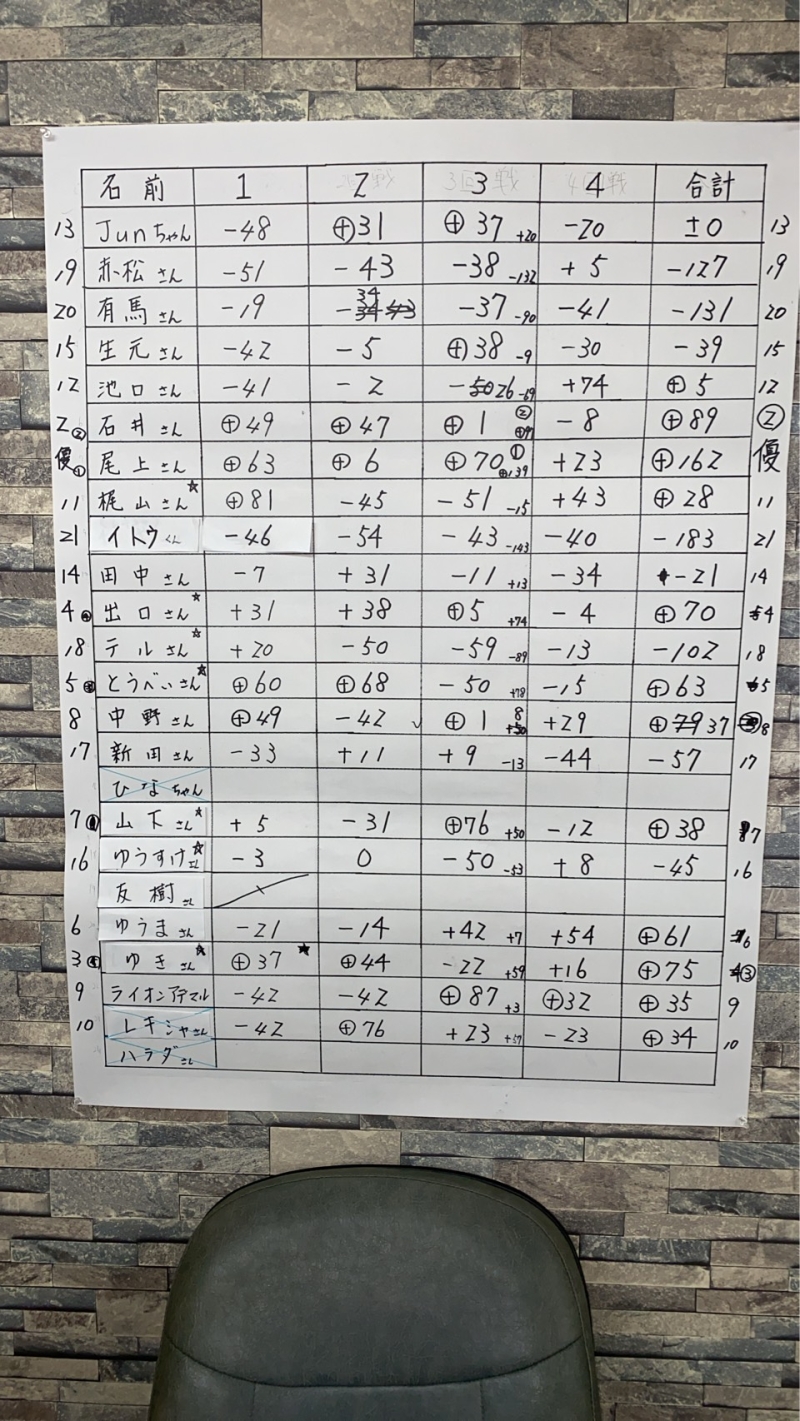 名前 1 2 3 4 合計
13 Junちゃん -48 ⊕31 ⊕37 +20 -20 ±0 13
19 赤松さん -51 -43 -38 -132 +5 -127 19
20 有馬さん -19 -34 -37 -90 -41 -131 20
15 生元さん -42 -5 ⊕38 -9 -30 -39 15
12 池口さん -41 -2 -50 26 -69 +74 ⊕5 12
2② 石井さん ⊕49 ⊕47 ⊕1 ② ⊕97 -8 ⊕89 ②
優① 尾上さん ⊕63 ⊕6 ⊕70 ① ⊕139 +23 ⊕162 優
11 梶山さん☆ ⊕81 -45 -51 -15 +43 ⊕28 11
21 イトウくん -46 -54 -43 -143 -40 -183 21
14 田中さん -7 +31 -11 +13 -34 -21 14
4 出口さん☆ +31 +38 ⊕5 +74 -4 ⊕70 4
18 テルさん☆ +20 -50 -59 -89 -13 -102 18
5 とうべいさん★ ⊕60 ⊕68 -50 +78 -15 ⊕63 5
8 中野さん ⊕49 -42 ⊕1 8 +50 +29 ⊕79 37 8
17 新田さん -33 +11 +9 -13 -44 -57 17
ひなちゃん
7 山下さん☆ +5 -31 ⊕76 +50 -12 ⊕38 7
16 ゆうすけさん☆ -3 0 -50 -53 +8 -45 16
友樹さん
6 ゆうまさん -21 -14 +42 +7 +54 ⊕61 6
3 ゆきさん☆ ⊕37 ★ ⊕44 -22 +59 +16 ⊕75 ③
9 ライオンアニマル -42 -42 ⊕87 +3 ⊕32 ⊕35 9
10 レキシャさん -42 ⊕76 +23 +57 -23 ⊕34 10
ハラダさん